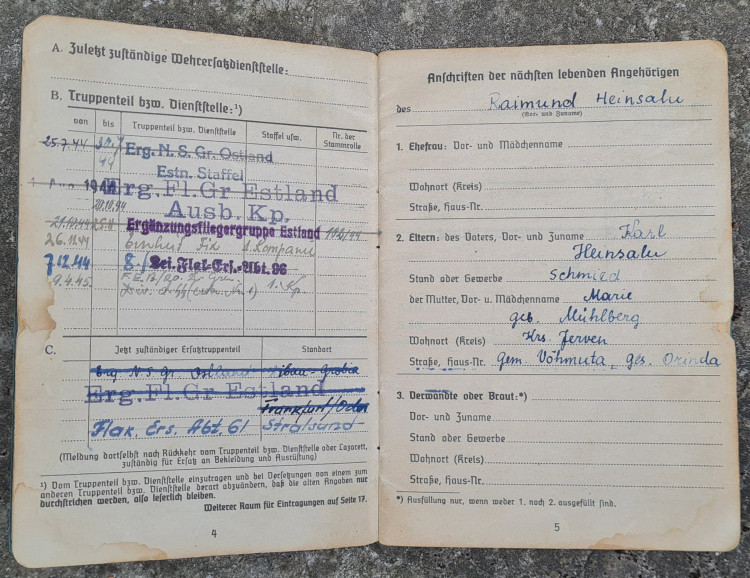 A. Zuletzt zuständige Wehrersatzdienststelle:
B. Truppenteil bzw. Dienststelle:¹)
von bis Truppenteil bzw. Dienststelle Staffel usw. Nr. der Stammrolle
25.7.44 Erg. N. S. Gr. Ostland
44 Estn. Staffel
1944 Erg. Fl. Gr Estland
20.10.44 Ausb. Kp.
21.10.44 Ergänzungsfliegergruppe Estland
26.11.44 Einheit Fix 1. Kompanie
7.12.44 8./Bei. Flak-Ers.-Abt. 96
9.4.45 1. Kp
C. Jetzt zuständiger Ersatztruppenteil Standort
Erg N. S. Gr. Ostland Libau-Grobin
Erg. Fl. Gr Estland
Frankfurt/Oder
Flak. Ers. Abt. 61 Stralsund
(Meldung dortselbst nach Rückkehr vom Truppenteil bzw. Dienststelle oder Lazarett,
zuständig für Ersatz an Bekleidung und Ausrüstung)
¹) Vom Truppenteil bzw. Dienststelle einzutragen und bei Versetzungen von einem zum
anderen Truppenteil bzw. Dienststelle derart abzuändern, daß die alten Angaben nur
durchstrichen werden, also leserlich bleiben.
Weiterer Raum für Eintragungen auf Seite 17.
4
Anschriften der nächsten lebenden Angehörigen
des Raimund Heinsalu
(Vor- und Zuname)
1. Ehefrau: Vor- und Mädchenname
Wohnort (Kreis)
Straße, Haus-Nr.
2. Eltern: des Vaters, Vor- und Zuname Karl
Heinsalu
Stand oder Gewerbe Schmied
der Mutter, Vor- u. Mädchenname Marie
geb. Mühlberg
Wohnort (Kreis) Krs. Jerven
Straße, Haus-Nr. Gem. Võhmuta, Ges. Orinda
3. Verwandte oder Braut:*)
Vor- und Zuname
Stand oder Gewerbe
Wohnort (Kreis)
Straße, Haus-Nr.
*) Ausfüllung nur, wenn weder 1. noch 2. ausgefüllt sind.
5